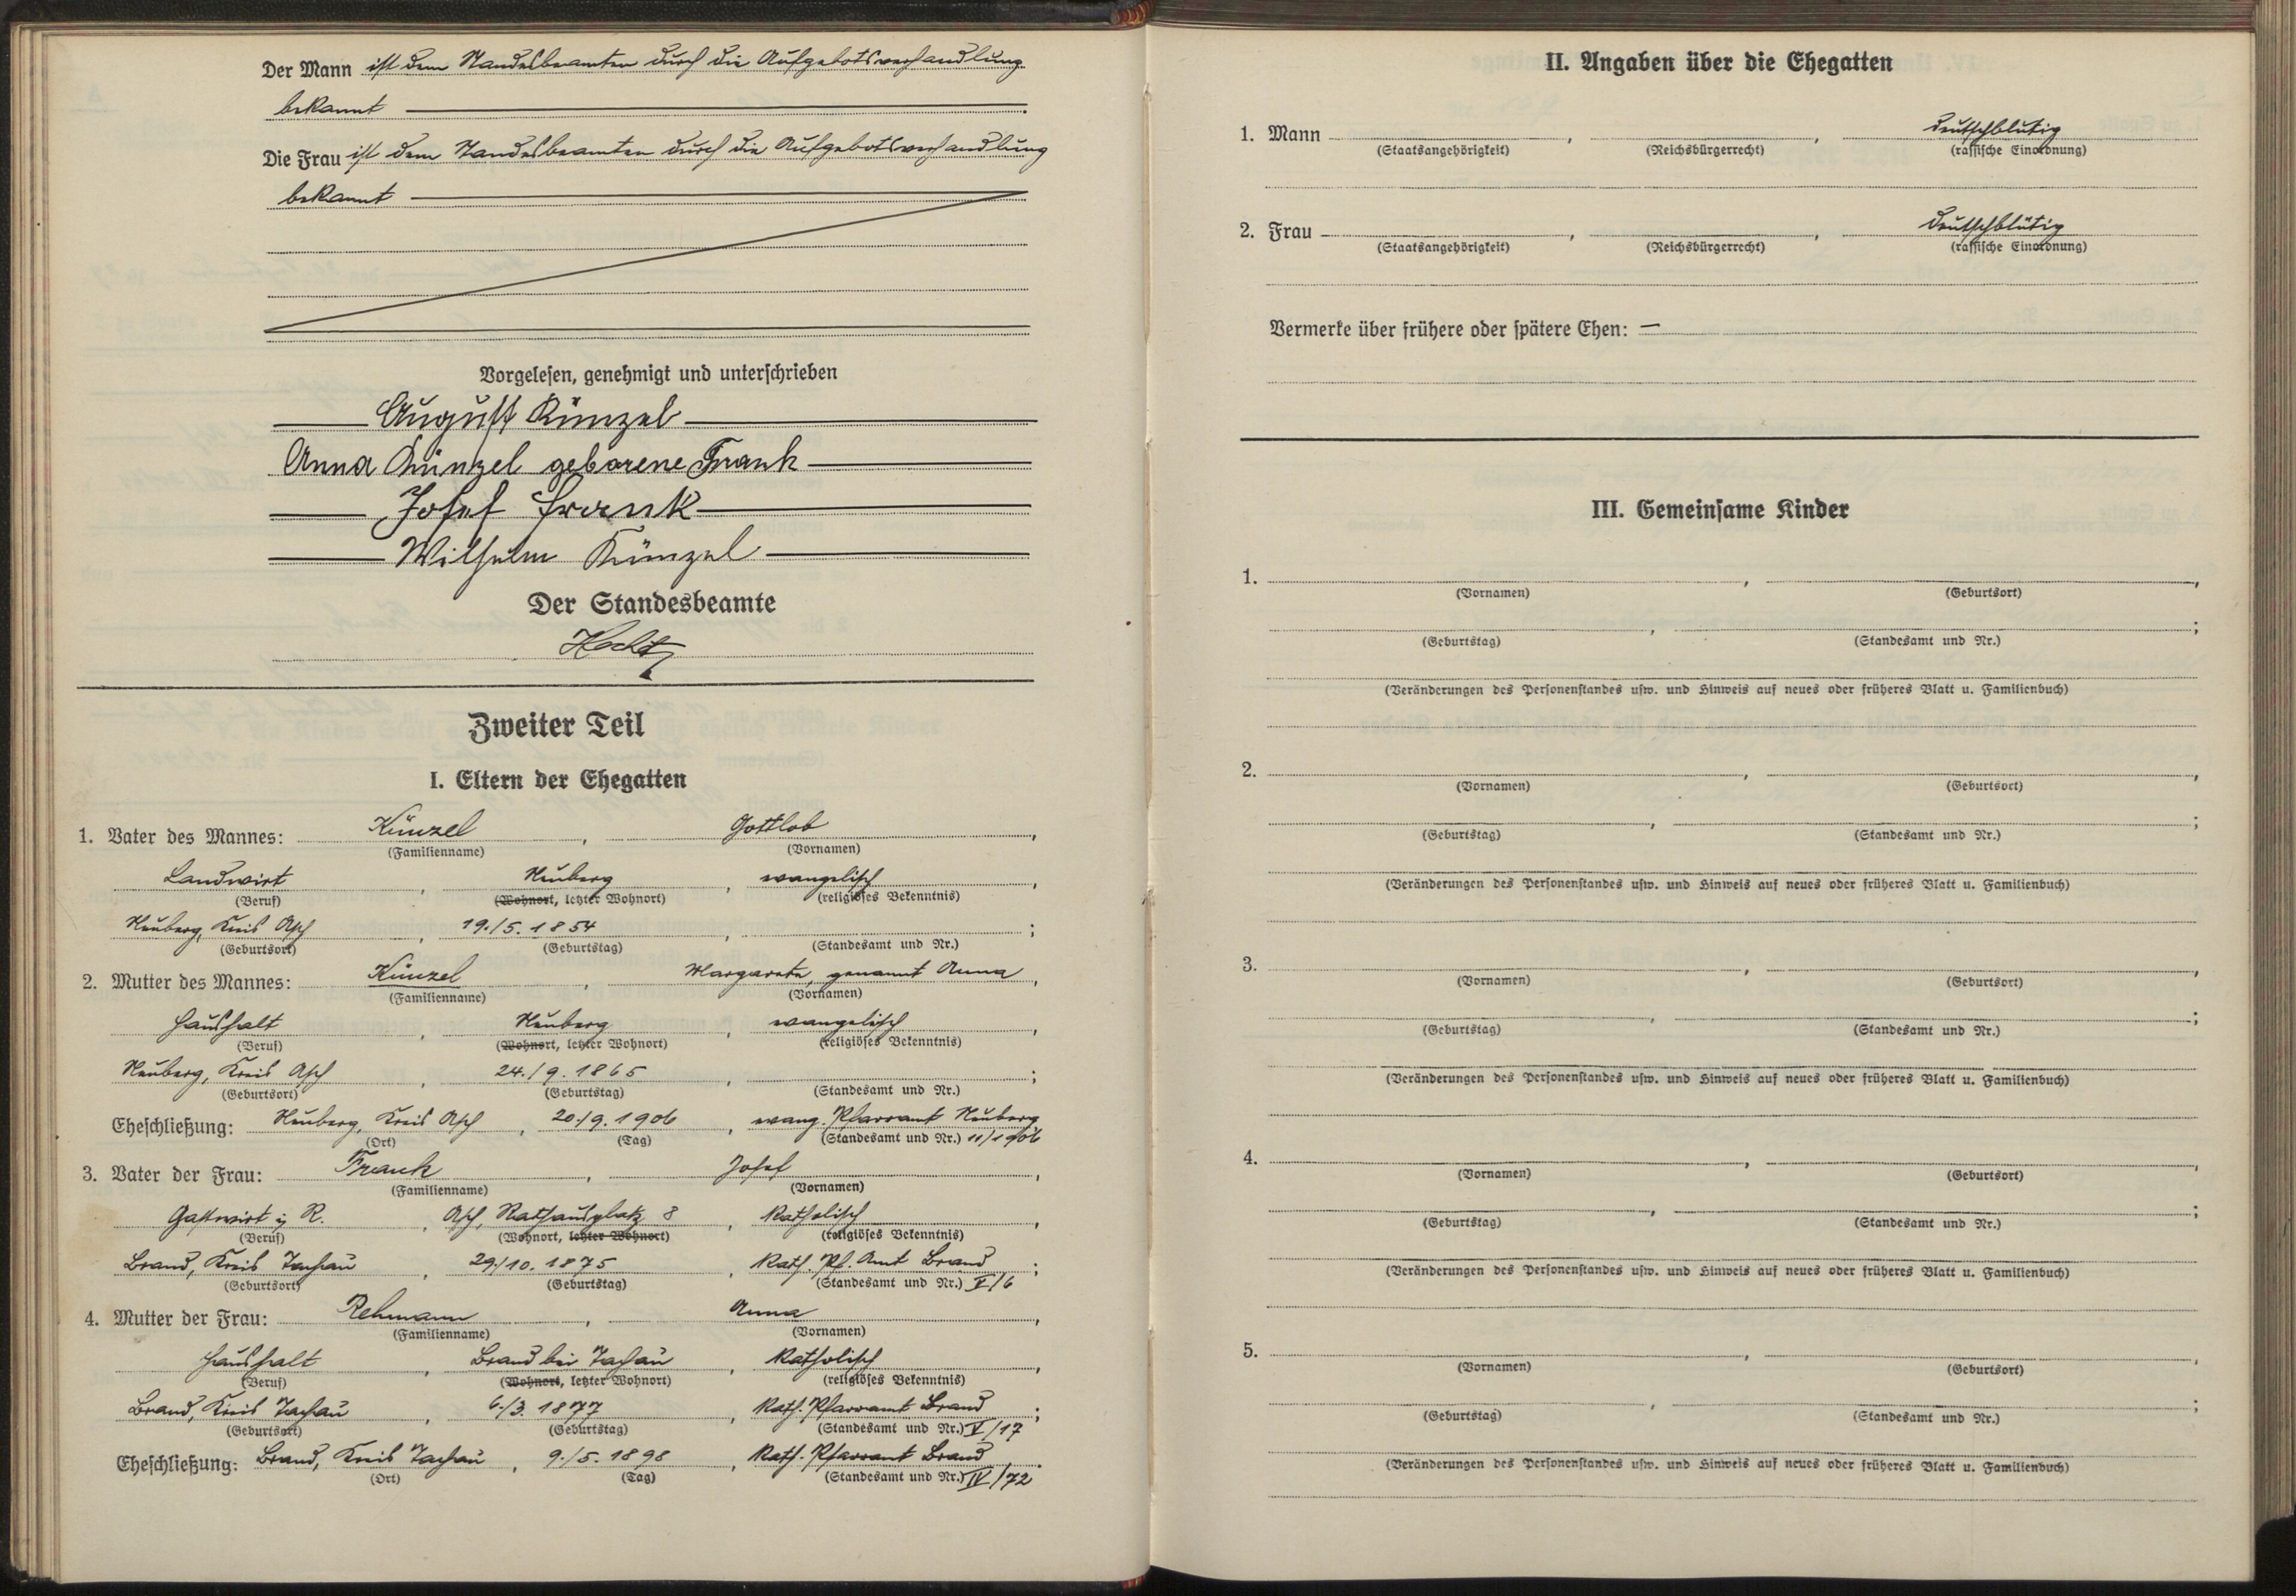 Der Mann ist dem Standesbeamten durch die Aufgebotsverhandlung
bekannt
Die Frau ist dem Standesbeamten durch die Aufgebotsverhandlung
bekannt
Vorgelesen, genehmigt und unterschrieben
August Künzel
Anna Künzel geborene Frank
Josef Frank
Wilhelm Künzel
Der Standesbeamte
Zweiter Teil
I. Eltern der Ehegatten
1. Vater des Mannes: Künzel, Gottlob,
(Familienname) (Vornamen)
Landwirt, Neuberg, evangelisch,
(Beruf) (Wohnort, letzter Wohnort) (religiöses Bekenntnis)
Neuberg, Kreis Asch, 19./5. 1854, ;
(Geburtsort) (Geburtstag) (Standesamt und Nr.)
2. Mutter des Mannes: Künzel, Margareta, genannt Anna,
(Familienname) (Vornamen)
Haushalt, Neuberg, evangelisch,
(Beruf) (Wohnort, letzter Wohnort) (religiöses Bekenntnis)
Neuberg, Kreis Asch, 24./9. 1865, ;
(Geburtsort) (Geburtstag) (Standesamt und Nr.)
Eheschließung: Neuberg, Kreis Asch, 20./9. 1906, evang. Pfarramt Neuberg
(Ort) (Tag) (Standesamt und Nr.) 11/1906
3. Vater der Frau: Frank, Josef,
(Familienname) (Vornamen)
Gastwirt i. R., Asch, Rathausplatz 8, katholisch,
(Beruf) (Wohnort, letzter Wohnort) (religiöses Bekenntnis)
Brand, Kreis Tachau, 29./10. 1875, Kath. Pf. Amt Brand;
(Geburtsort) (Geburtstag) (Standesamt und Nr.) V/6
4. Mutter der Frau: Rehmann, Anna,
(Familienname) (Vornamen)
Haushalt, Brand bei Tachau, katholisch,
(Beruf) (Wohnort, letzter Wohnort) (religiöses Bekenntnis)
Brand, Kreis Tachau, 6./3. 1877, Kath. Pfarramt Brand;
(Geburtsort) (Geburtstag) (Standesamt und Nr.) V/17
Eheschließung: Brand, Kreis Tachau, 9./5. 1898, Kath. Pfarramt Brand.
(Ort) (Tag) (Standesamt und Nr.) IV/72
II. Angaben über die Ehegatten
1. Mann , , deutschblütig
(Staatsangehörigkeit) (Reichsbürgerrecht) (rassische Einordnung)
2. Frau , , deutschblütig
(Staatsangehörigkeit) (Reichsbürgerrecht) (rassische Einordnung)
Vermerke über frühere oder spätere Ehen: —
III. Gemeinsame Kinder
1. , ,
(Vornamen) (Geburtsort)
, ;
(Geburtstag) (Standesamt und Nr.)
(Veränderungen des Personenstandes usw. und Hinweis auf neues oder früheres Blatt u. Familienbuch)
2. , ,
(Vornamen) (Geburtsort)
, ;
(Geburtstag) (Standesamt und Nr.)
(Veränderungen des Personenstandes usw. und Hinweis auf neues oder früheres Blatt u. Familienbuch)
3. , ,
(Vornamen) (Geburtsort)
, ;
(Geburtstag) (Standesamt und Nr.)
(Veränderungen des Personenstandes usw. und Hinweis auf neues oder früheres Blatt u. Familienbuch)
4. , ,
(Vornamen) (Geburtsort)
, ;
(Geburtstag) (Standesamt und Nr.)
(Veränderungen des Personenstandes usw. und Hinweis auf neues oder früheres Blatt u. Familienbuch)
5. , ,
(Vornamen) (Geburtsort)
, ;
(Geburtstag) (Standesamt und Nr.)
(Veränderungen des Personenstandes usw. und Hinweis auf neues oder früheres Blatt u. Familienbuch)